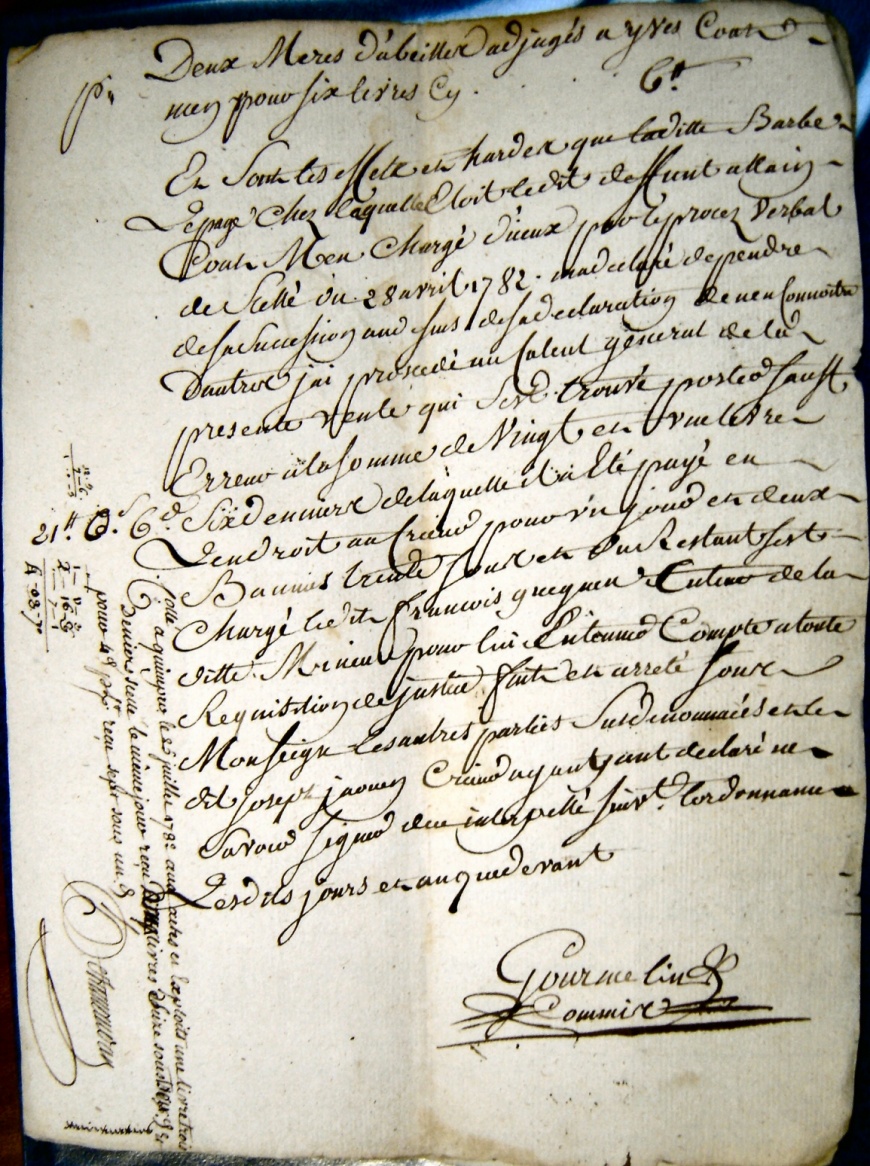 Deux Meres d'abeilles adjugés a yves Coat
men pour six livres Cy . . 6#
En Sont les Meubles et hardes que laditte Barbe
Lepage Chez laquelle Etoit ledit deffunt allain
Coat Men Chargé d'iceux par le procez Verbal
de Scellé du 28 avril 1782. a declaré dependre
de sa Succession aud sus de sa declaration de n'en Connoitre
D'autres j'ai procedé au Calcul général de la
presente Vente qui s'est trouvé porter sauff
Erreur a la somme de Vingt et une livre
21# 0s 6d Six deniers de laquelle il a Eté payé en
L'endroit au Crieur pour un jour et deux
Bannies trente soux et du Restant s'est
Chargé ledit francois gueguen Tuteur de la
ditte Mineure pour lui En tenir Compte a toute
Requisition de justice fait et arreté soux
Mon seign Les autres parties Susdenommées et le
dit joseph jaouen Crieur ayant declaré ne
Savoir signer de ce interpellé suivt l'ordonnance
Lesdits jours et an que devant
Gourmelin
Commis
a quimper le 26 juillet 1782 aux actes et Exploits une livre trois
Deniers scellé le même jour reçu livres seize sous
pour 4d pr £ reçu sept sous un d